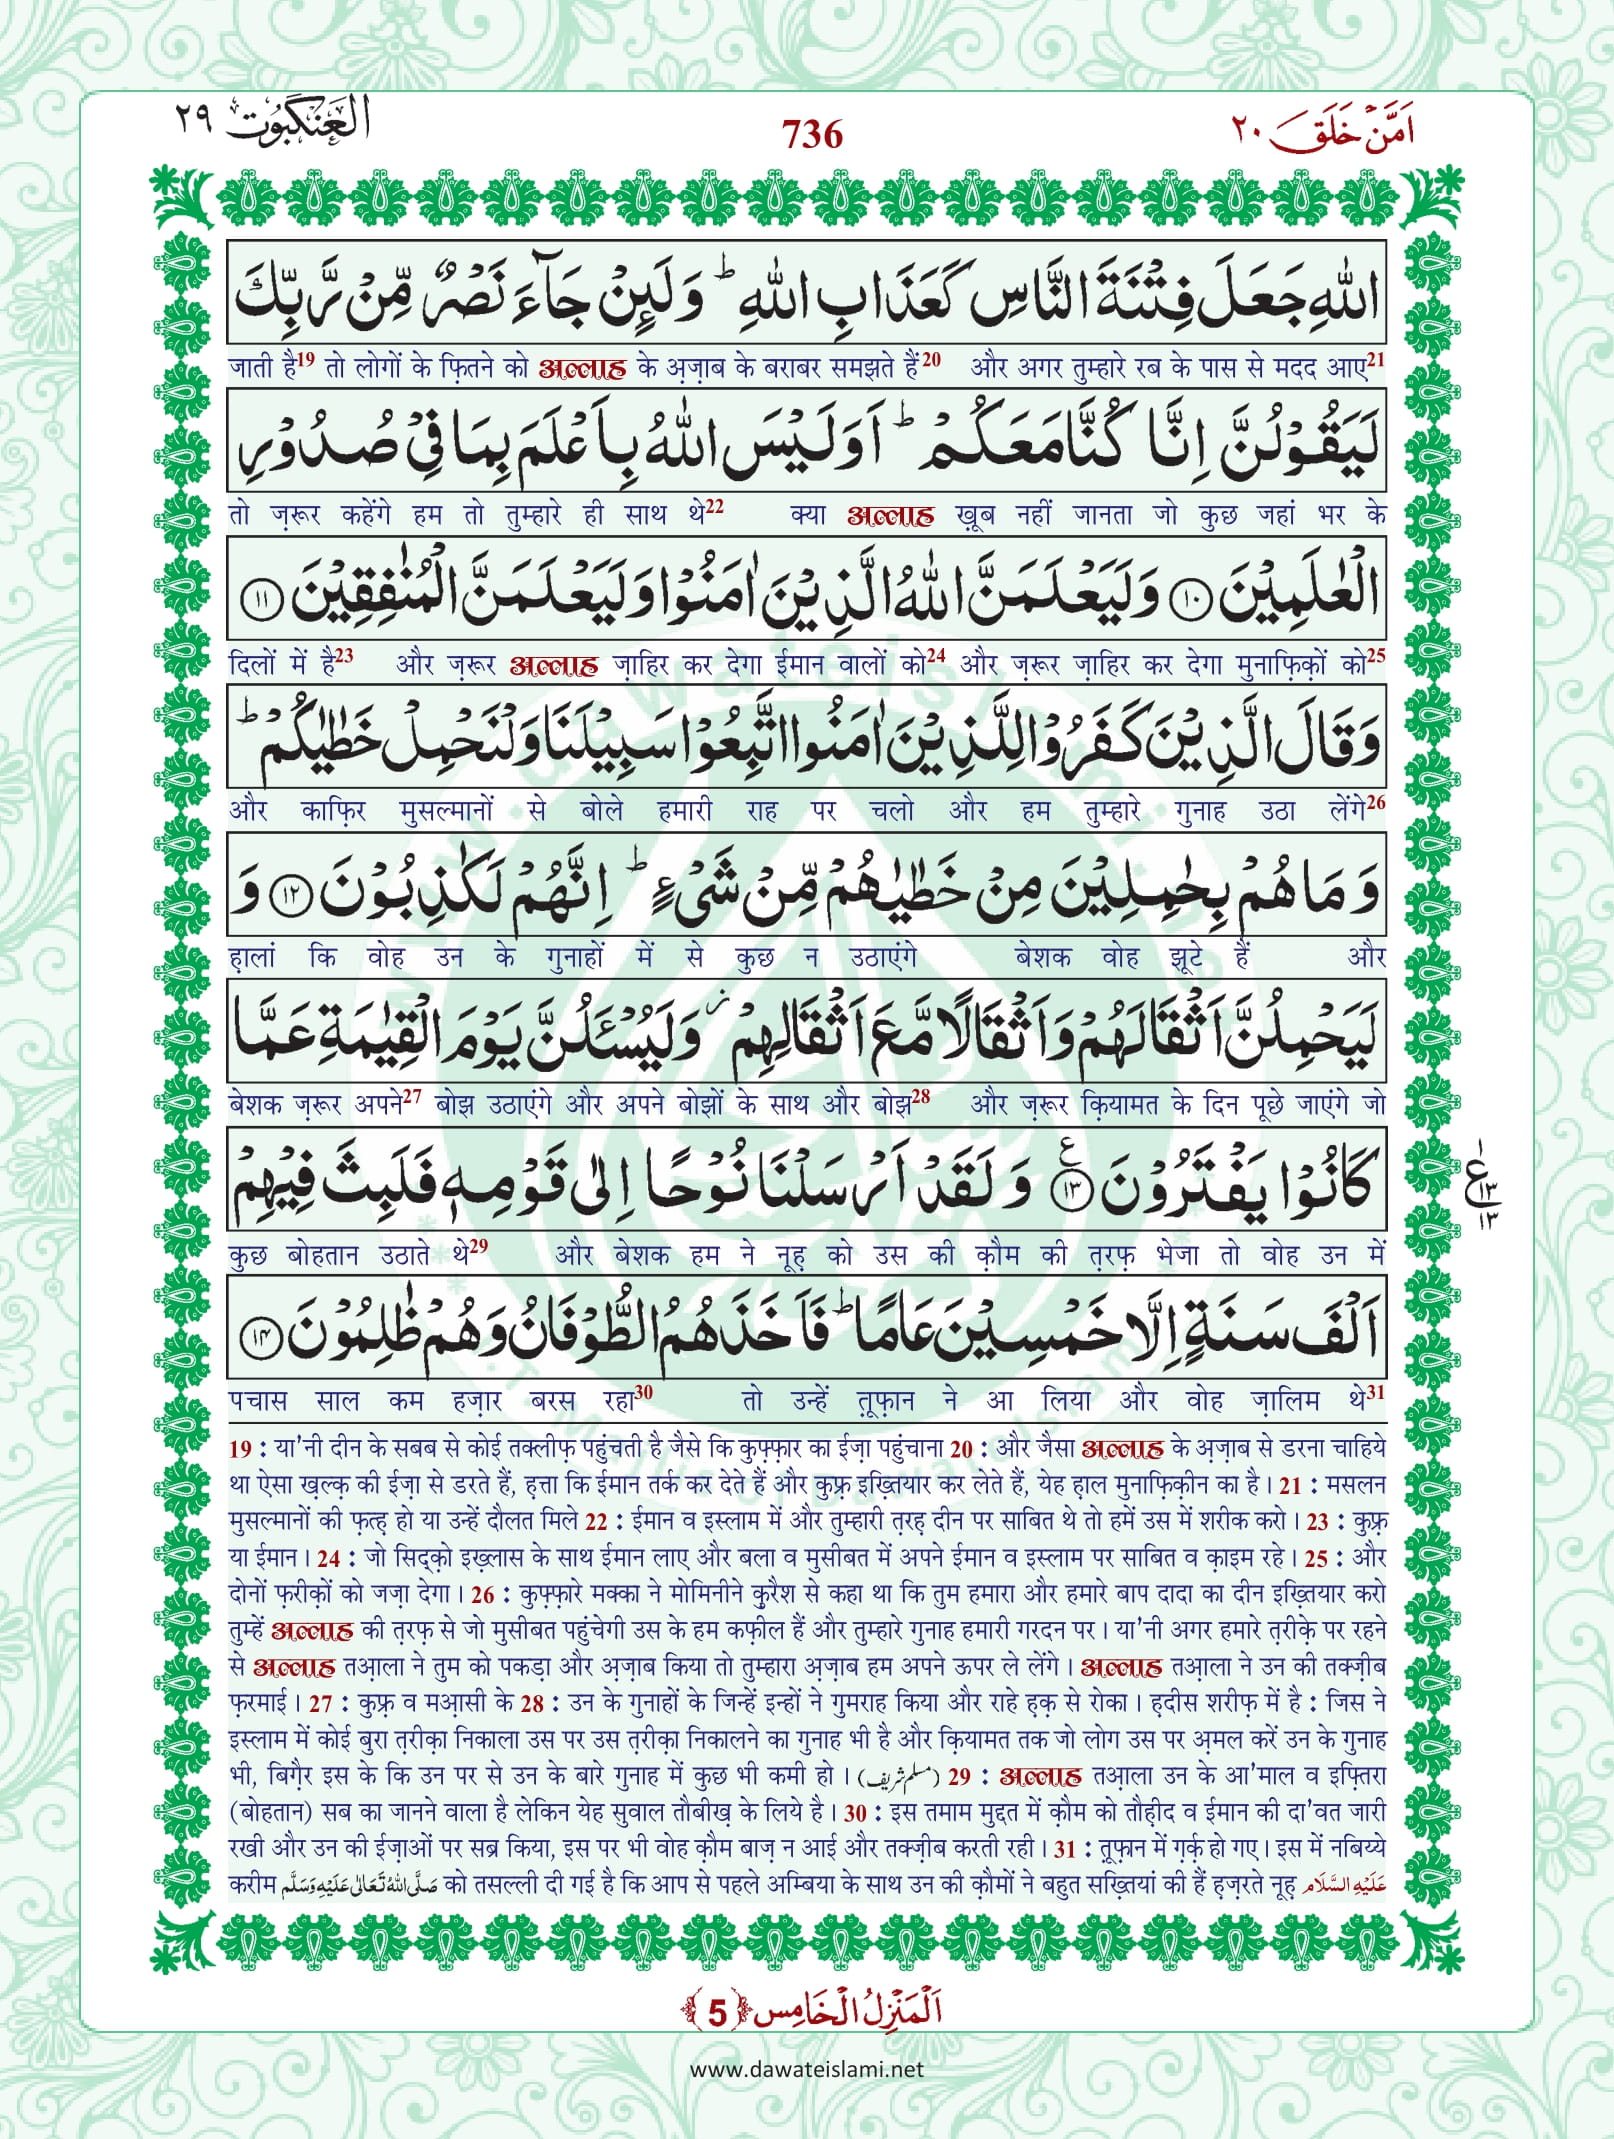 اَمَّنْ خَلَقَ ٢٠
736
الْعَنْكَبُوْت ٢٩
اللّٰهِ جَعَلَ فِتْنَةَ النَّاسِ كَعَذَابِ اللّٰهِ ؕ وَلَىِٕنْ جَآءَ نَصْرٌ مِّنْ رَّبِّكَ
जाती है19 तो लोगों के फ़ितने को अल्लाह के अ़ज़ाब के बराबर समझते हैं20 और अगर तुम्हारे रब के पास से मदद आए21
لَیَقُوْلُنَّ اِنَّا كُنَّا مَعَكُمْ ؕ اَوَ لَیْسَ اللّٰهُ بِاَعْلَمَ بِمَا فِیْ صُدُوْرِ
तो ज़रूर कहेंगे हम तो तुम्हारे ही साथ थे22 क्या अल्लाह ख़ूब नहीं जानता जो कुछ जहां भर के
الْعٰلَمِیْنَ ۝۱۰ وَ لَیَعْلَمَنَّ اللّٰهُ الَّذِیْنَ اٰمَنُوْا وَ لَیَعْلَمَنَّ الْمُنٰفِقِیْنَ ۝۱۱
दिलों में है23 और ज़रूर अल्लाह ज़ाहिर कर देगा ईमान वालों को24 और ज़रूर ज़ाहिर कर देगा मुनाफ़िक़ों को25
وَ قَالَ الَّذِیْنَ كَفَرُوْا لِلَّذِیْنَ اٰمَنُوا اتَّبِعُوْا سَبِیْلَنَا وَ لْنَحْمِلْ خَطٰیٰكُمْ ؕ
और काफ़िर मुसल्मानों से बोले हमारी राह पर चलो और हम तुम्हारे गुनाह उठा लेंगे26
وَ مَا هُمْ بِحٰمِلِیْنَ مِنْ خَطٰیٰهُمْ مِّنْ شَیْءٍ ؕ اِنَّهُمْ لَكٰذِبُوْنَ ۝۱۲ وَ
ह़ालां कि वोह उन के गुनाहों में से कुछ न उठाएंगे बेशक वोह झूटे हैं और
لَیَحْمِلُنَّ اَثْقَالَهُمْ وَ اَثْقَالًا مَّعَ اَثْقَالِهِمْ ؗ وَ لَیُسْـَٔلُنَّ یَوْمَ الْقِیٰمَةِ عَمَّا
बेशक ज़रूर अपने27 बोझ उठाएंगे और अपने बोझों के साथ और बोझ28 और ज़रूर क़ियामत के दिन पूछे जाएंगे जो
كَانُوْا یَفْتَرُوْنَ ۝۱۳ ع وَ لَقَدْ اَرْسَلْنَا نُوْحًا اِلٰى قَوْمِهٖ فَلَبِثَ فِیْهِمْ
ع ١
١٣
١٣
कुछ बोहतान उठाते थे29 और बेशक हम ने नूह़ को उस की क़ौम की त़रफ़ भेजा तो वोह उन में
اَلْفَ سَنَةٍ اِلَّا خَمْسِیْنَ عَامًا ؕ فَاَخَذَهُمُ الطُّوْفَانُ وَ هُمْ ظٰلِمُوْنَ ۝۱۴
पचास साल कम हज़ार बरस रहा30 तो उन्हें त़ूफ़ान ने आ लिया और वोह ज़ालिम थे31
19 : या'नी दीन के सबब से कोई तक्लीफ़ पहुंचती है जैसे कि कुफ़्फ़ार का ईज़ा पहुंचाना 20 : और जैसा अल्लाह के अ़ज़ाब से डरना चाहिये
था ऐसा ख़ल्क़ की ईज़ा से डरते हैं, ह़त्ता कि ईमान तर्क कर देते हैं और कुफ़्र इख़्तियार कर लेते हैं, येह ह़ाल मुनाफ़िक़ीन का है। 21 : मसलन
मुसल्मानों की फ़त्ह़ हो या उन्हें दौलत मिले 22 : ईमान व इस्लाम में और तुम्हारी त़रह़ दीन पर साबित थे तो हमें उस में शरीक करो। 23 : कुफ़्र
या ईमान। 24 : जो सिद्क़ो इख़्लास के साथ ईमान लाए और बला व मुसीबत में अपने ईमान व इस्लाम पर साबित व क़ाइम रहे। 25 : और
दोनों फ़रीक़ों को जज़ा देगा। 26 : कुफ़्फ़ारे मक्का ने मोमिनीने क़ुरैश से कहा था कि तुम हमारा और हमारे बाप दादा का दीन इख़्तियार करो
तुम्हें अल्लाह की त़रफ़ से जो मुसीबत पहुंचेगी उस के हम कफ़ील हैं और तुम्हारे गुनाह हमारी गरदन पर। या'नी अगर हमारे त़रीक़े पर रहने
से अल्लाह तआ़ला ने तुम को पकड़ा और अ़ज़ाब किया तो तुम्हारा अ़ज़ाब हम अपने ऊपर ले लेंगे। अल्लाह तआ़ला ने उन की तक्ज़ीब
फ़रमाई। 27 : कुफ़्र व मआ़सी के 28 : उन के गुनाहों के जिन्हें इन्हों ने गुमराह किया और राहे ह़क़ से रोका। ह़दीस शरीफ़ में है : जिस ने
इस्लाम में कोई बुरा त़रीक़ा निकाला उस पर उस त़रीक़ा निकालने का गुनाह भी है और क़ियामत तक जो लोग उस पर अ़मल करें उन के गुनाह
भी, बिग़ैर इस के कि उन पर से उन के बारे गुनाह में कुछ भी कमी हो। (مسلم شریف) 29 : अल्लाह तआ़ला उन के आ'माल व इफ़्तिरा
(बोहतान) सब का जानने वाला है लेकिन येह सुवाल तौबीख़ के लिये है। 30 : इस तमाम मुद्दत में क़ौम को तौह़ीद व ईमान की दा'वत जारी
रखी और उन की ईज़ाओं पर सब्र किया, इस पर भी वोह क़ौम बाज़ न आई और तक्ज़ीब करती रही। 31 : त़ूफ़ान में ग़र्क़ हो गए। इस में नबिय्ये
करीम صَلَّی اللّٰهُ تَعَالٰی عَلَیْهِ وَسَلَّم को तसल्ली दी गई है कि आप से पहले अम्बिया के साथ उन की क़ौमों ने बहुत सख़्तियां की हैं ह़ज़रते नूह़ عَلَیْهِ السَّلَام
اَلْمَنْزِلُ الْخَامِس ﴿5﴾
www.dawateislami.net